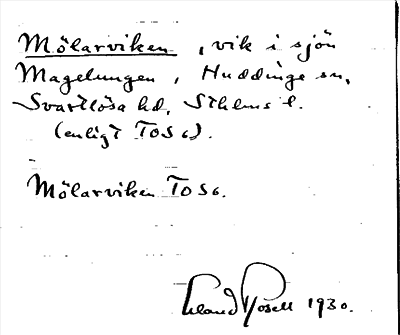 Mölarviken, vik i sjön
Magelungen, Huddinge sn,
Svartlösa hd, Sthlms l.
(enligt TOS6).
Mölarviken TOS6.
Erland Rosell 1930.